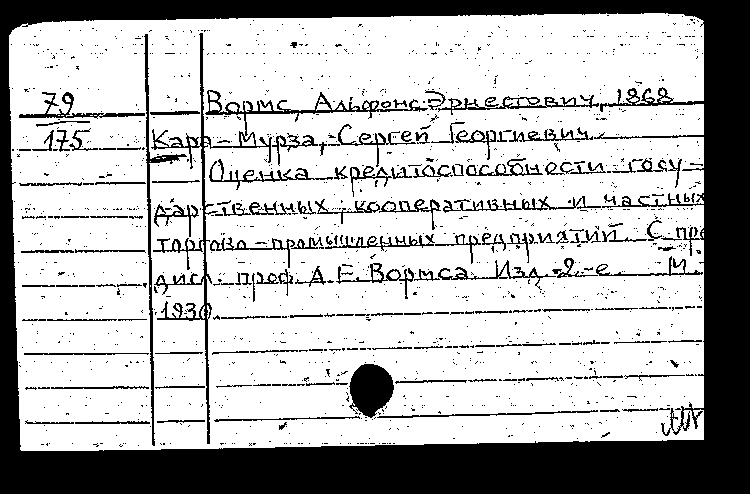 79 Вормс, Альфонс Эрнестович, 1868
175 Кара-Мурза, Сергей Георгиевич
Оценка кредитоспособности госу-
дарственных, кооперативных и частных
торгово-промышленных предприятий. С пре
дисл. проф. А.Е. Вормса. Изд. 2-е. М.
1930